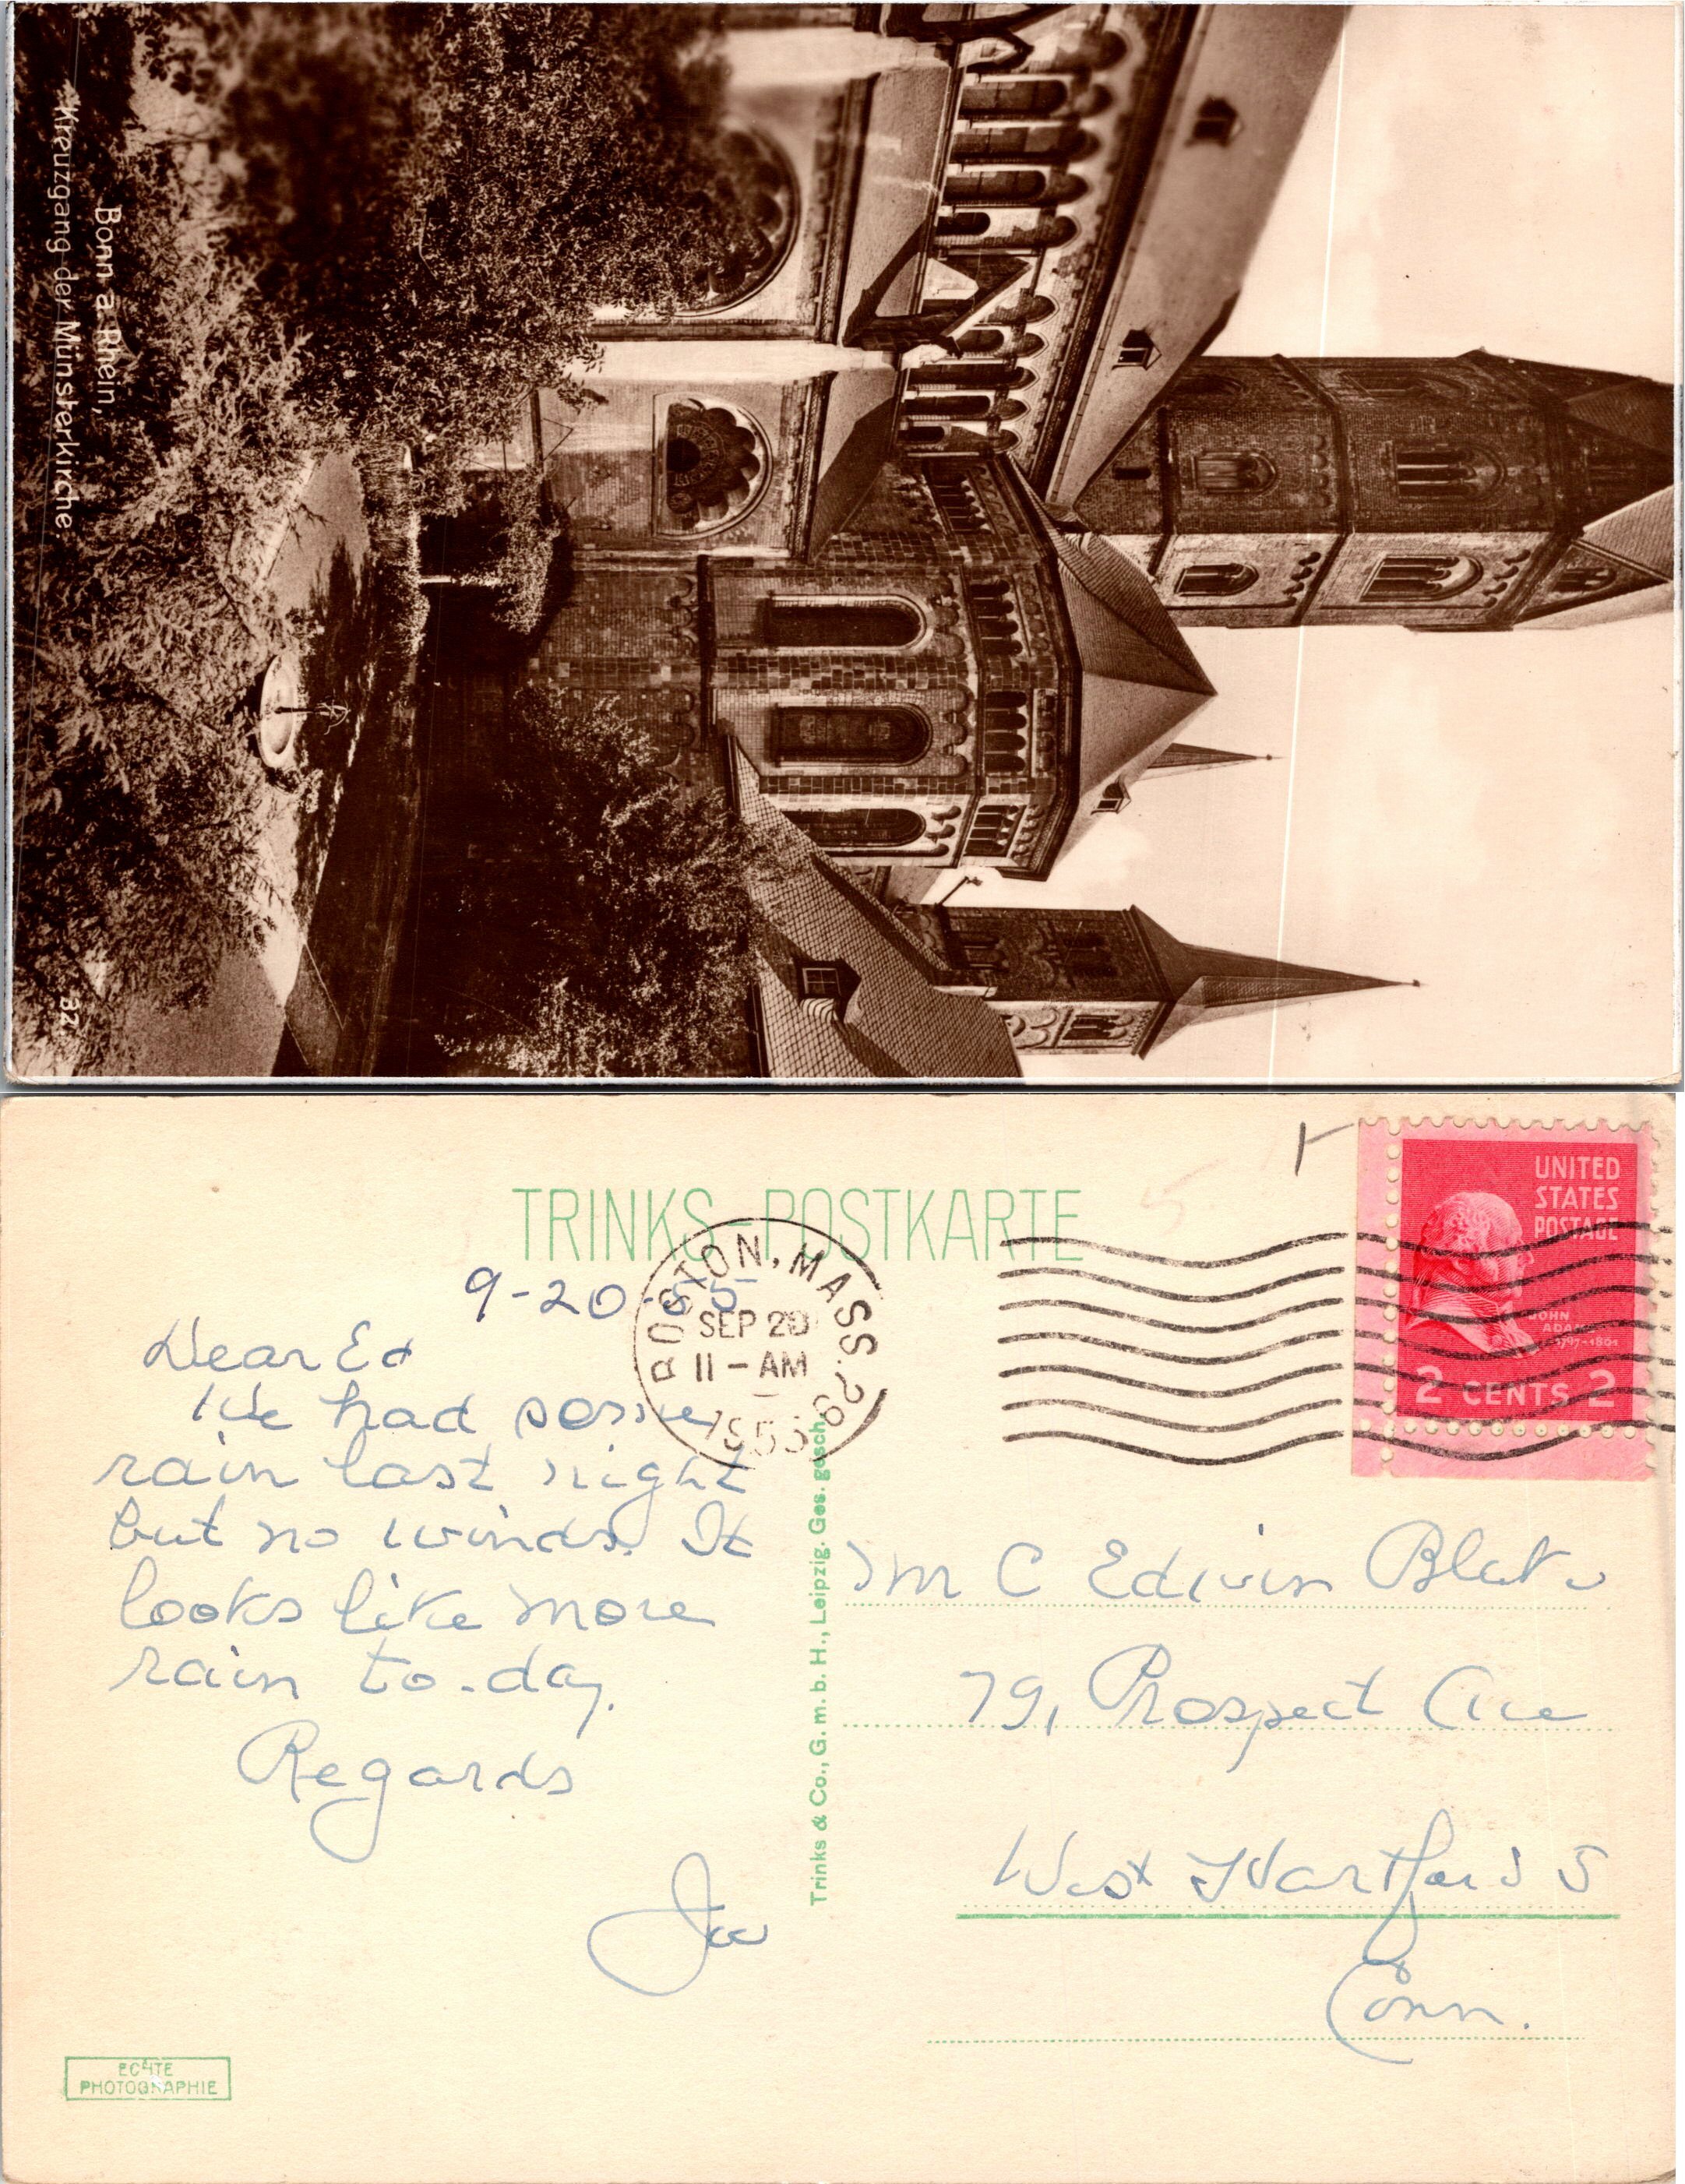 Bonn a. Rhein,
Kreuzgang der Münsterkirche.
32
TRINKS-POSTKARTE
9-20-55
BOSTON, MASS. 29
SEP 20
11 - AM
1955
UNITED
STATES
POSTAGE
JOHN
ADAMS
1797-1801
2 CENTS 2
Dear Ed
We had some
rain last night
but no winds. It
looks like more
rain to-day.
Regards
Joe
Trinks & Co., G. m. b. H., Leipzig. Ges. gesch.
Mr C Edwin Blake
79, Prospect Ave
West Hartford 5
Conn.
ECHTE
PHOTOGRAPHIE